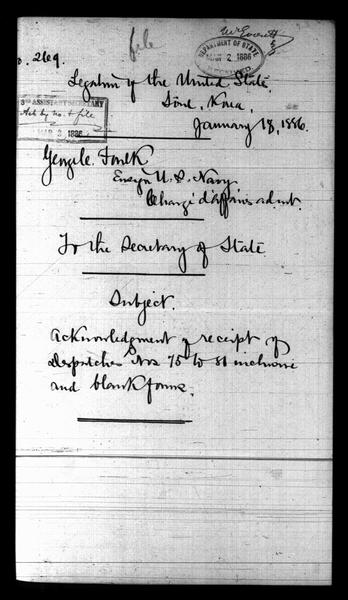 file
Mr Everett
DEPARTMENT OF STATE
MAR 2 1886
RECEIVED
No. 269.
Legation of the United States
Söul, Korea,
3RD ASSISTANT SECRETARY
Ack by no. & file
MAR 2 1886
January 18, 1886.
George C. Foulk
Ensign U. S. Navy
Chargé d'Affaires ad int.
To the Secretary of State
Subject.
Acknowledgment of receipt of
Despatches Nos 75 to 81 inclusive
and blank forms.